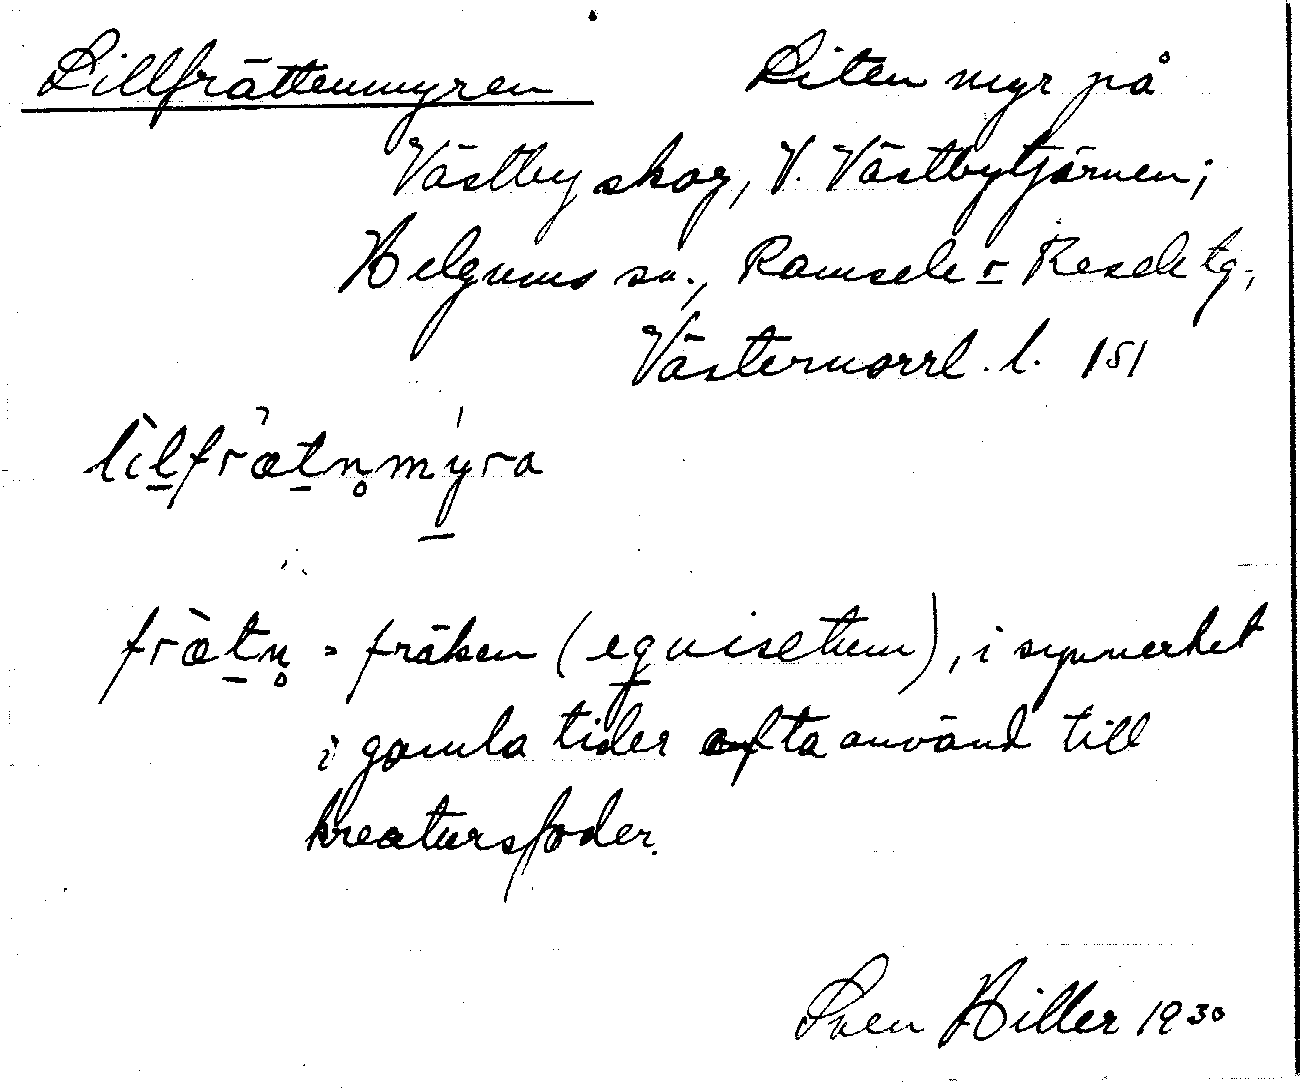 Lillfrättenmyren Liten myr på
Västby skog, V. Västbytjärnen;
Helgums sn., Ramsele o Resele tg.,
Västernorrl. l. 151
lìlfrætn̥mýra
fræ̀tn̥ = fräken (equisetum), i synnerhet
i gamla tider ofta använd till
kreatursfoder.
Sven Hiller 1930